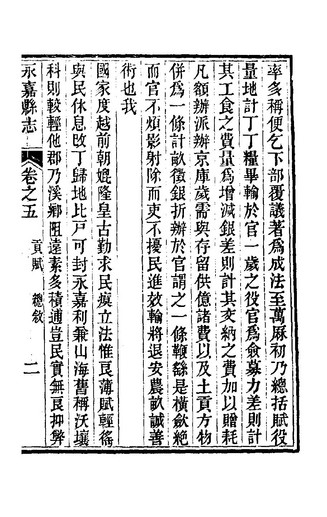 率多稱便乞下部覆議著爲成法至萬厤初乃總括賦役
量地計丁丁糧畢輸於官一歲之役官爲僉募力差則計
其工食之費量爲增減銀差則計其交納之費加以贈耗
凡額辦派辦京庫歲需與存留供億諸費以及土貢方物
併爲一條計畝徵銀折辦於官謂之一條鞭繇是橫斂絶
而官不煩影射除而吏不擾民進效輸將退安農畝誠善
術也我
國家度越前朝媲隆皇古勤求民瘼立法惟艮薄賦輕徭
與民休息攺丁歸地比戸可封永嘉利兼山海舊稱沃壤
科則較輕他郡乃溪鄉阻遠素多積逋豈民實無艮抑弊
永嘉縣志
卷之五
貢賦
總敘
二